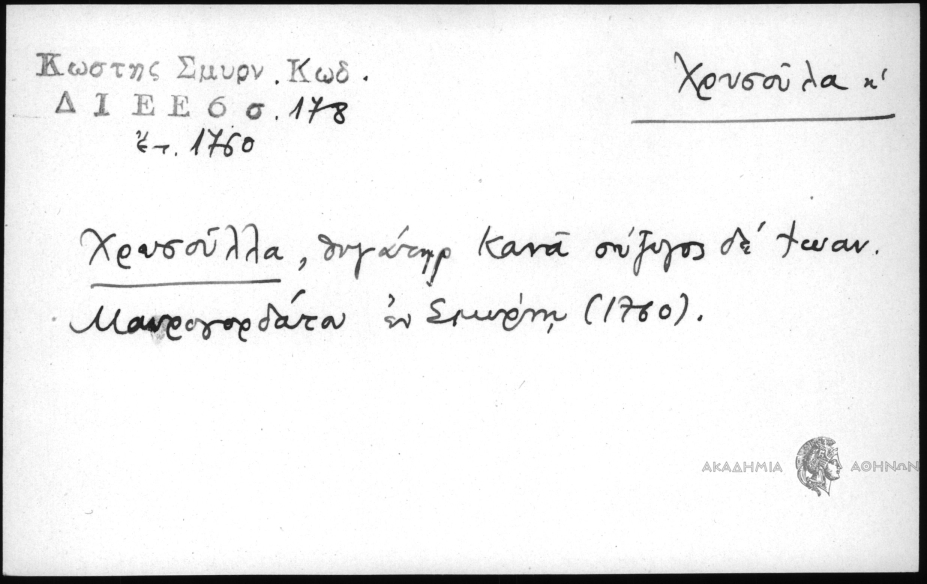 Κωστης Σμυρν. Κωδ.
Δ Ι Ε Ε 6 σ. 178
ἔτ. 1760
Χρυσοῦλα κ'
Χρυσοῦλλα, θυγάτηρ Κανᾶ σύζυγος δέ Ἰωαν.
Μαυρογορδάτου ἐν Σμύρνῃ (1760).
ΑΚΑΔΗΜΙΑ ΑΘΗΝΩΝ